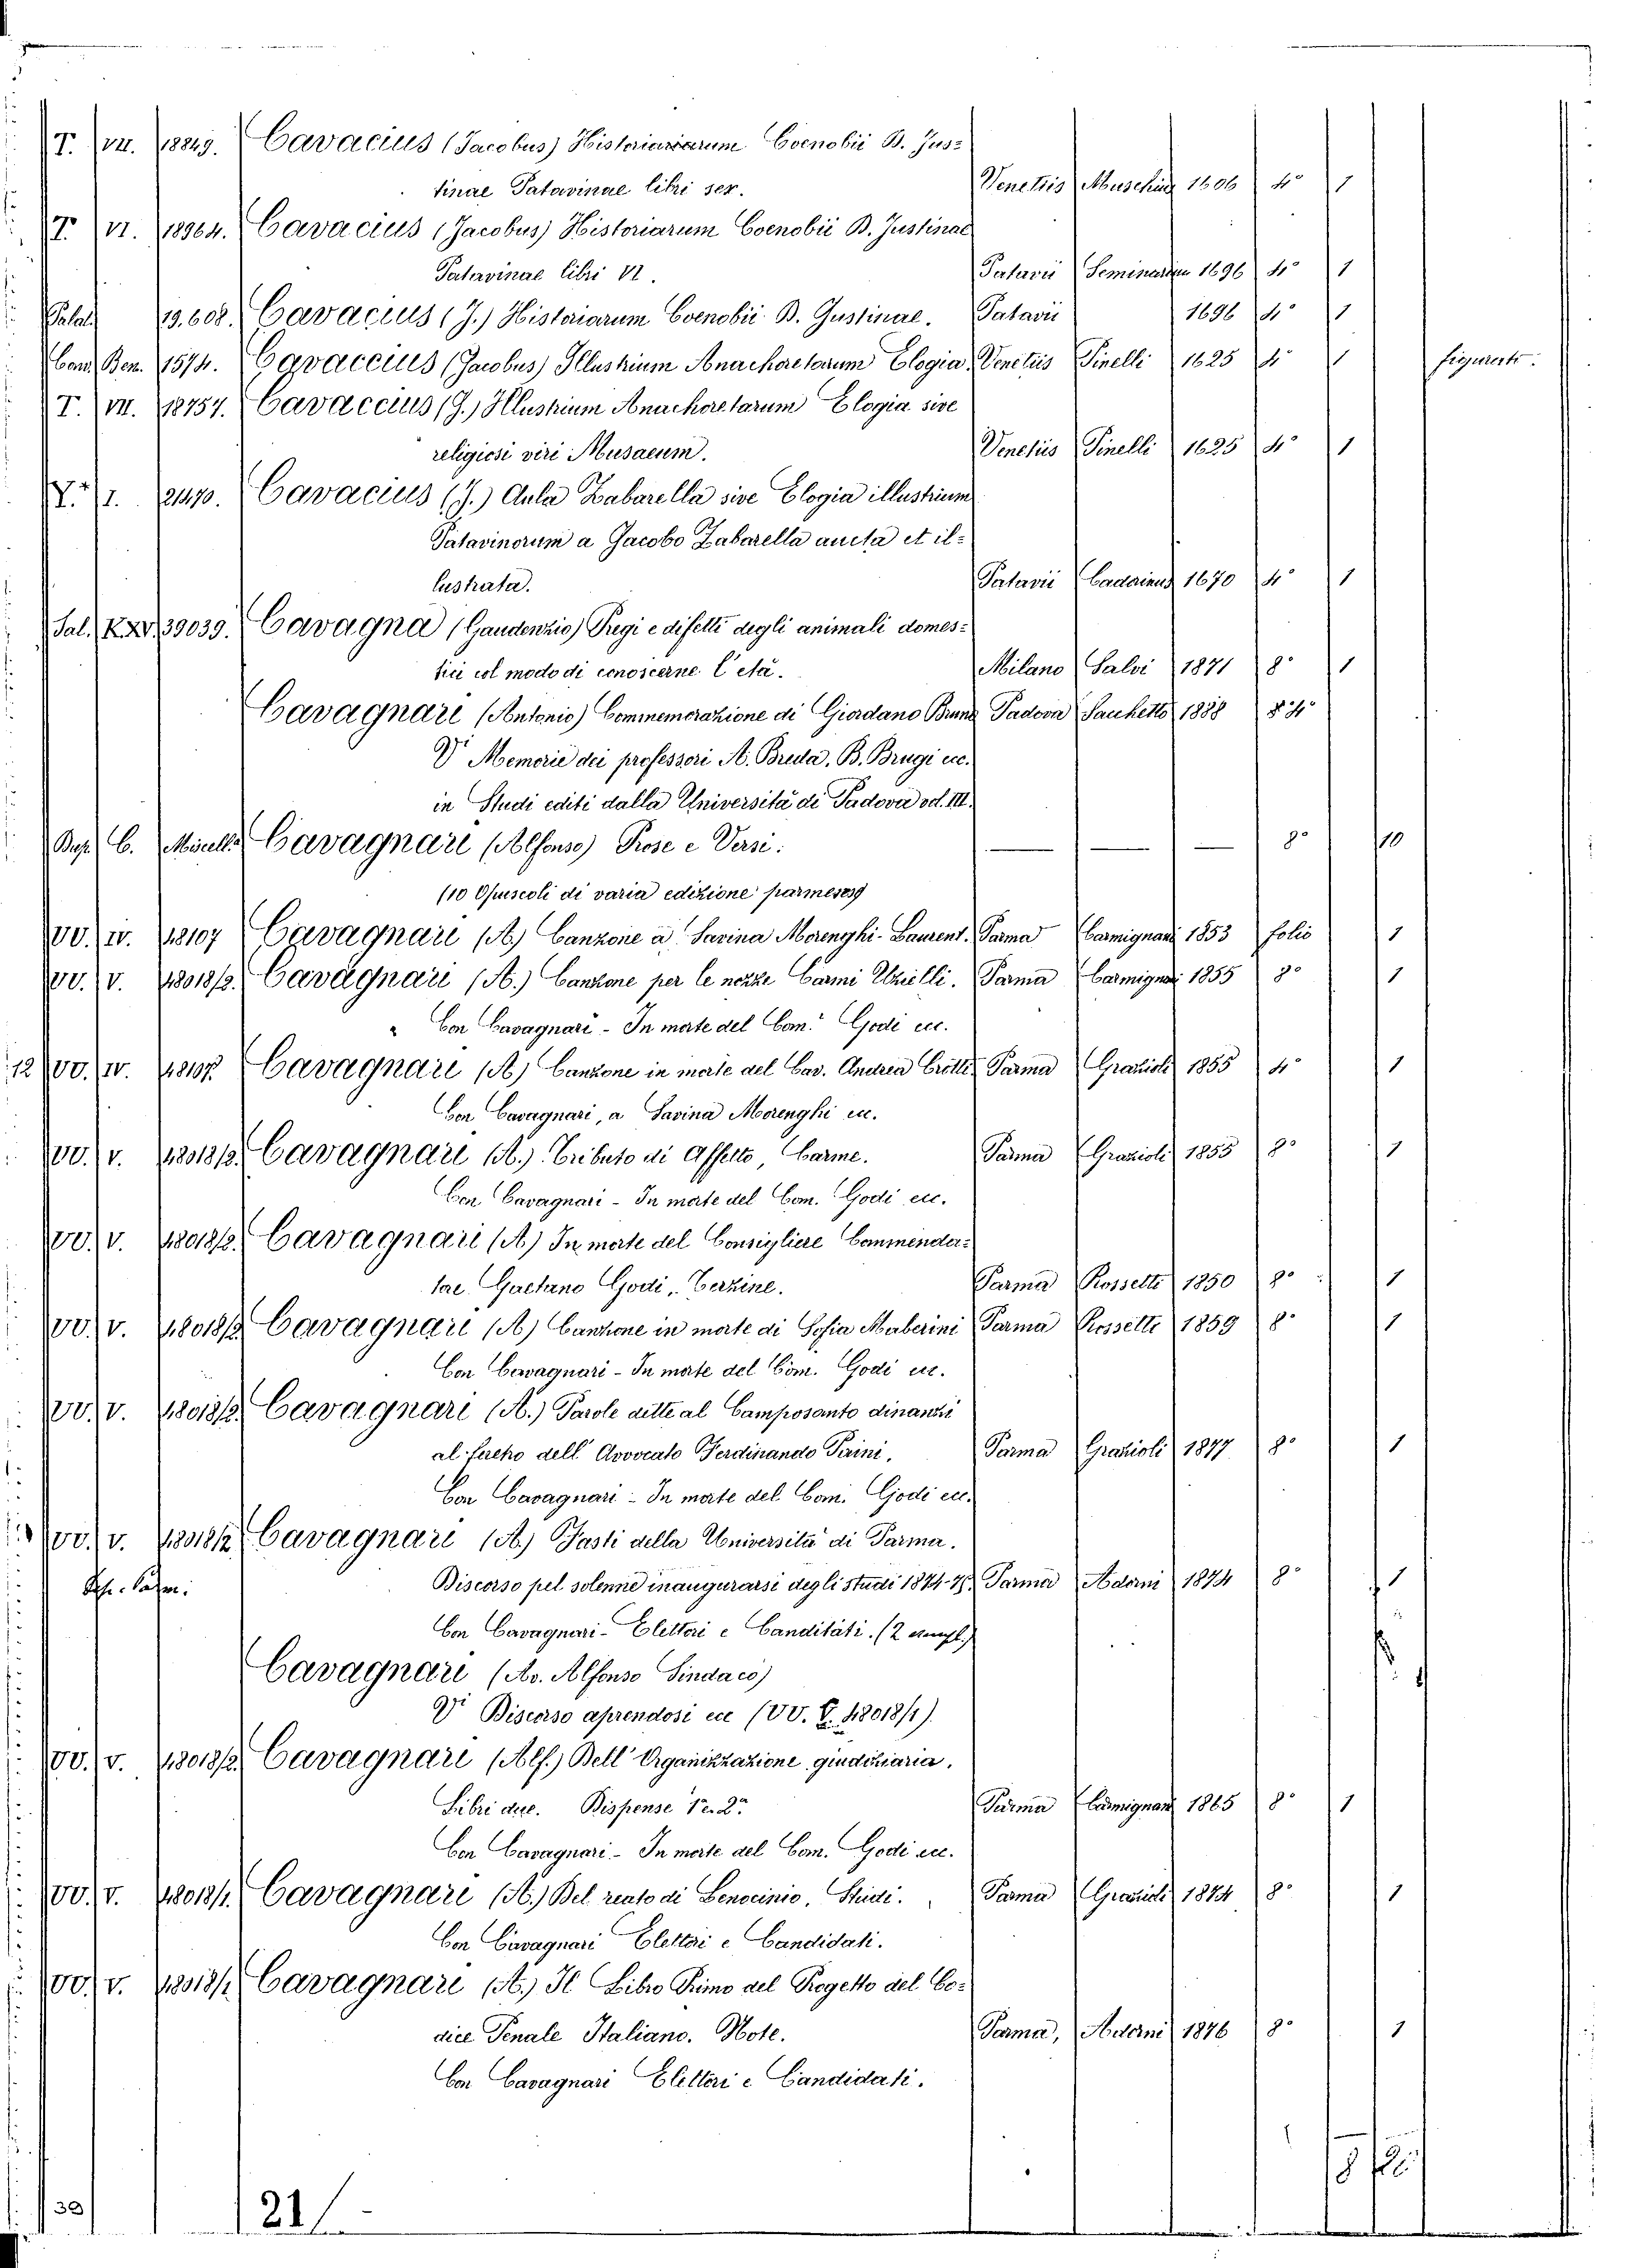 T. VII. 18849. Cavacius (Jacobus) Historiarum Coenobii B. Jus=
tinae Patavinae libri sex. Venetiis Muschius 1606 4° 1
T. VI. 18964. Cavacius (Jacobus) Historiarum Coenobii B. Justinae
Patavinae libri VI. Patavii Seminarium 1696 4° 1
Palat. 19.608. Cavacius (J.) Historiarum Coenobii B. Justinae. Patavii 1696 4° 1
Cam. Ben. 1574. Cavaccius (Jacobus) Illustrium Anachoretarum Elogia Venetiis Pinelli 1625 4° 1 figurato.
T. VII. 18757. Cavaccius (J.) Illustrium Anachoretarum Elogia sive
religiosi viri Musaeum. Venetiis Pinelli 1625 4° 1
I. 21470. Cavacius (J.) Aula Zabarella sive Elogia illustrium
Patavinorum a Jacobo Zabarella aucta et il=
lustrata. Patavii Cadorinus 1670 4° 1
Sal. XXV. 39039. Cavagna (Gaudenzio) Pregi e difetti degli animali domes=
tici col modo di conoscerne l'età. Milano Salvi 1871 8° 1
Cavagnari (Antonio) Commemorazione di Giordano Bruno Padova Sacchetto 1888 8° 4°
V. Memorie dei professori A. Breda, B. Brugi ecc.
in Studi editi dalla Università di Padova vol. III.
C. Miscell. Cavagnari (Alfonso) Prose e Versi. — — — 8° 10
(10 Opuscoli di varia edizione parmense)
VV. IV. 48107 Cavagnari (A.) Canzone a Savina Morenghi-Laurent. Parma Carmignani 1853 folio 1
VV. V. 48018/2. Cavagnari (A.) Canzone per le nozze Carmi Uzielli. Parma Carmignani 1855 8° 1
Con Cavagnari - In morte del Com. Godi ecc.
12 VV. IV. 48107. Cavagnari (A.) Canzone in morte del Cav. Andrea Crotti Parma Grazioli 1855 4° 1
Con Cavagnari, a Savina Morenghi ecc.
VV. V. 48018/2. Cavagnari (A.) Tributo di Affetto, Carme. Parma Grazioli 1855 8° 1
Con Cavagnari - In morte del Com. Godi ecc.
VV. V. 48018/2. Cavagnari (A.) In morte del Consigliere Commenda=
tore Gaetano Godi, Terzine. Parma Rossetti 1850 8° 1
VV. V. 48018/2 Cavagnari (A.) Canzone in morte di Sofia Maberini Parma Rossetti 1859 8° 1
Con Cavagnari - In morte del Com. Godi ecc.
VV. V. 48018/2. Cavagnari (A.) Parole dette al Camposanto dinanzi
al feretro dell' Avvocato Ferdinando Pirini, Parma Grazioli 1877 8° 1
Con Cavagnari - In morte del Com. Godi ecc.
VV. V. 48018/2 Cavagnari (A.) Fasti della Università di Parma.
Discorso pel solenne inaugurarsi degli studi 1874-75. Parma Adorni 1874 8° 1
Con Cavagnari - Elettori e Canditati. (2 esempl.)
Cavagnari (Av. Alfonso Sindaco)
Vi Discorso aprendosi ecc (VV. V. 48018/1).
VV. V. 48018/2. Cavagnari (Alf.) Dell' Organizzazione giudiziaria.
Libri due. Dispense 1ª e 2ª Parma Carmignani 1865 8° 1
Con Cavagnari - In morte del Com. Godi ecc.
VV. V. 48018/1. Cavagnari (A.) Del reato di Lenocinio, Studi. Parma Grazioli 1874 8° 1
Con Cavagnari Elettori e Candidati.
VV. V. 48018/1 Cavagnari (A.) Il Libro Primo del Progetto del Co=
dice Penale Italiano. Note. Parma, Adorni 1876 8° 1
Con Cavagnari Elettori e Candidati.
30 21